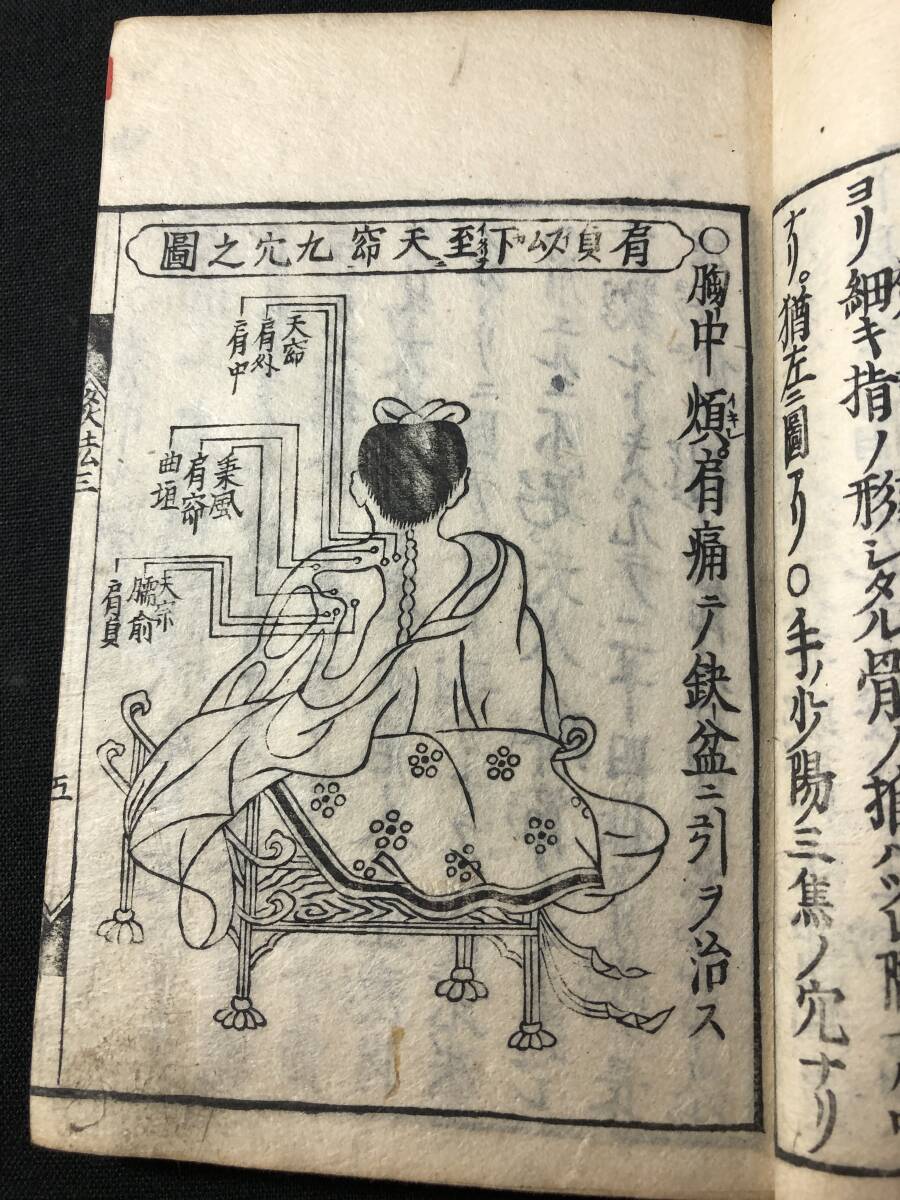 ヨリ細キ指ノ形シタル骨ノ
ナリ。猶左ニ圖アリ〇手ノ少陽三焦ノ穴ナリ
〇胸中煩。肩痛テノ鈌盆ニ引ヲ治ス
イキレ
肩貞以下至天窌九穴之圖
天窌
肩外
肩中
秉風
肩窌
曲垣
天宗
臑俞
肩貞
灸法三
五